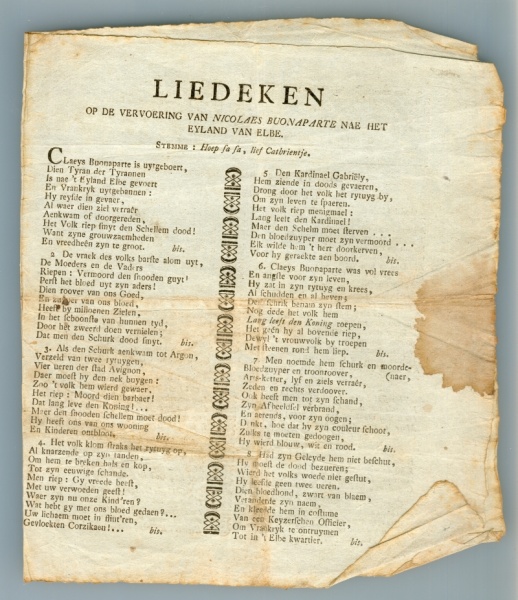 LIEDEKEN
OP DE VERVOERING VAN NICOLAES BUONAPARTE NAE HET
EYLAND VAN ELBE.
STEMME: Hoep sa sa, lief Cathrientje.
CLaeys Buonaparte is uytgeboert,
Dien Tyran der Tyrannen
Is nae 't Eyland Elbe gevoert
En Vrankryk uytgebannen:
Hy reysde in gevaer,
Al waer dien ziel verraêr
Aenkwam of doorgereden,
Het Volk riep stuyt den Schellem dood!
Want zyne grouwzaemheden
En vreedheên zyn te groot. bis.
2 De vraek des volks barste alom uyt,
De Moeders en de Vaders
Riepen: Vermoord den snooden guyt!
Perst het bloed uyt zyn aders!
Dien roover van ons Goed,
En zuyper van ons bloed,
Heeft by milioenen Zielen,
In het schoonste van hunnen tyd,
Door het zweerd doen vernielen;
Dat men den Schurk dood smyt. bis.
3. Als den Schurk aenkwam tot Argon,
Verzeld van twee rytuygen,
Vier ueren der stad Avignon,
Daer moest hy den nek buygen:
Zoo 't volk hem wierd gewaer,
Het riep: Moord dien barbaer!
Dat lang leve den Koning!...
Maer den snooden schellem moet dood!
Hy heeft ons van ons wooning
En Kinderen ontbloot. bis.
4. Het volk klom straks het rytuyg op,
Al knarzende op zyn tanden,
Om hem te breken hals en kop,
Tot zyn eeuwige schande.
Men riep: Gy vreede beest,
Met uw verwoeden geest!
Waer zyn nu onze Kind'ren?
Wat hebt gy met ons bloed gedaen?...
Uw lichaem moet in stuk'ren,
Gevloekten Corzikaen!... bis.
5 Den Kardinael Gabriëly,
Hem ziende in doods gevaeren,
Drong door het volk het rytuyg by,
Om zyn leven te spaeren.
Het volk riep menigmael:
Lang leeft den Kardinael!
Maer den Schelm moet sterven ...
Den bloedzuyper moet zyn vermoord ...
Elk wilde hem 't hert doorkerven,
Voor hy geraekte aen boord. bis.
6. Claeys Buonaparte was vol vrees
En angst voor zyn leven,
Hy zat in zyn rytuyg en krees,
Al schudden en al beven;
Den schrik benam zyn stem;
Nog dede het volk hem
Lang leeft den Koning roepen,
Het geên hy al bovende riep,
Dewyl 't vrouwvolk by troepen
Met steenen rond hem liep. bis.
7. Men noemde hem schurk en moorde-
Bloedzuyper en troonroover, (naer,
Aerts-ketter, lyf en ziels verraêr,
Zeden en rechts verdoover.
Ook heeft men tot zyn schand,
Zyn Afbeeldsel verbrand,
En aerends, voor zyn oogen;
Denkt, hoe dat hy zyn couleur schoot,
Zulks te moeten gedoogen,
Hy wierd blouw, wit en rood. bis.
8 Had zyn Geleyde hem niet beschut,
Hy moest de dood bezueren;
Wierd het volks woede niet gestut,
Hy leefde geen twee ueren.
Dien bloedhond, zwart van blaem,
Veranderde zyn naem,
En kleedde hem in costume
Van een Keyzerschen Officier,
Om Vrankryk te ontruymen
Tot in 't Elbe kwartier. bis.